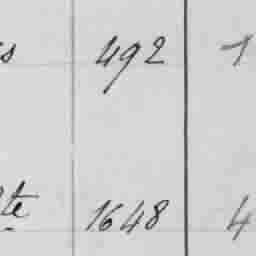 s 492 1
te 1648 4